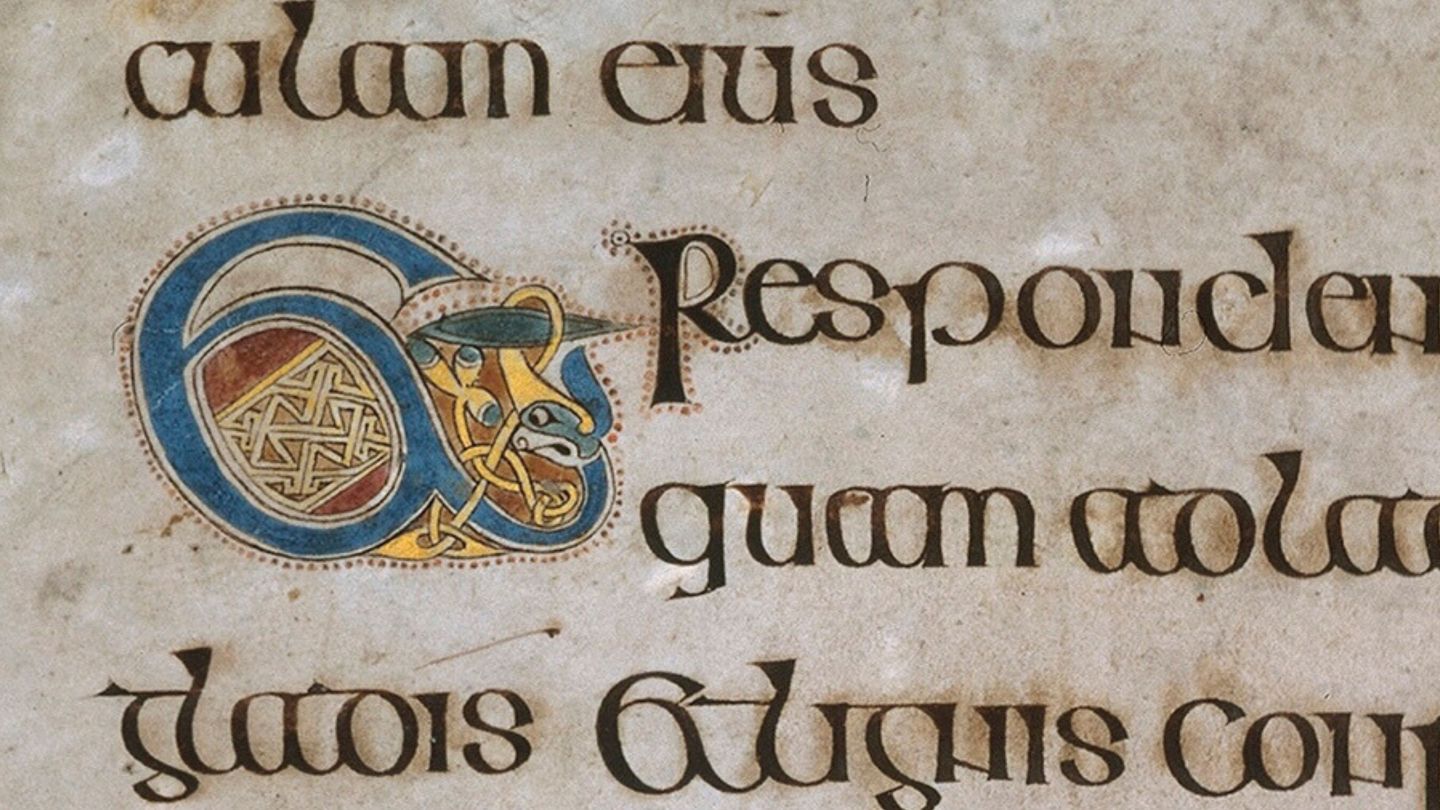 culam eius
Et Responden
quam adlat
gladis Et lignis conp